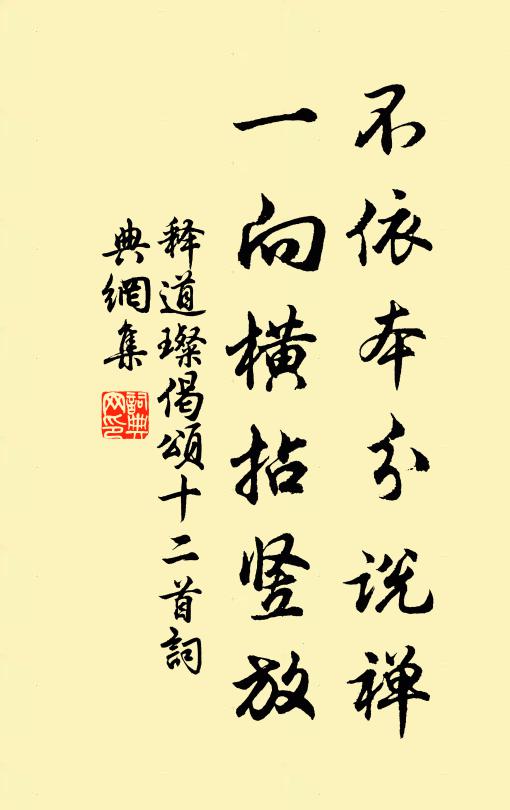 不依本分说禅
一向横拈竖放
释道璨偈颂十二首詞
典網集
詞典
网印